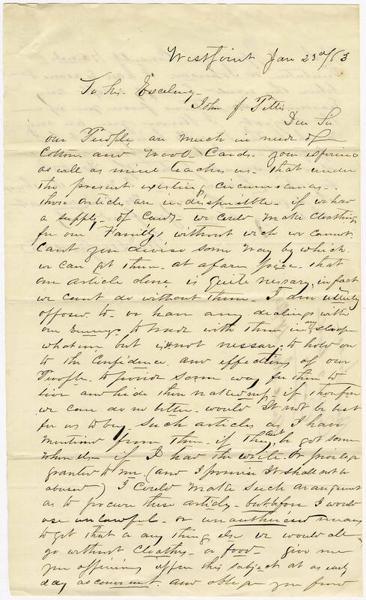 Westpoint Jan 23d/63
To his Excelency
John J Pettus
Dear Sir
our People are much in need of
Cotton and Wool Cards your experience
as well as mine teaches us that under
the present existing circumstances
those articles are indispensible if we had
a supply of Cards we could make clothing
for our Familys without wich we cannot
Cant you devise some way by which
we can get them at a fair price that
one article alone is quite nessary in fact
we cant do without them I am utterly
oposed to or haveing any dealings with
our enemy to trade with them in
whatever but is it not nessary to hold on
to the Confidence and effections of our
People to provide some way for them to
live and hide their nakedness if therefore
we can do no better would it not be best
for us to buy such articles as I have
mentioned from them if they cant be got some
where else if I had the write or privelege
granted to me (and I promise it shall not be
abused) I could make such arangement
as to procure these articles but before I would
use unlawful or unauthorised means
to get that or any thing else we would all
go without clothing or food give me
your oppinion upon this subject at as early
day as convenient and oblige your friend